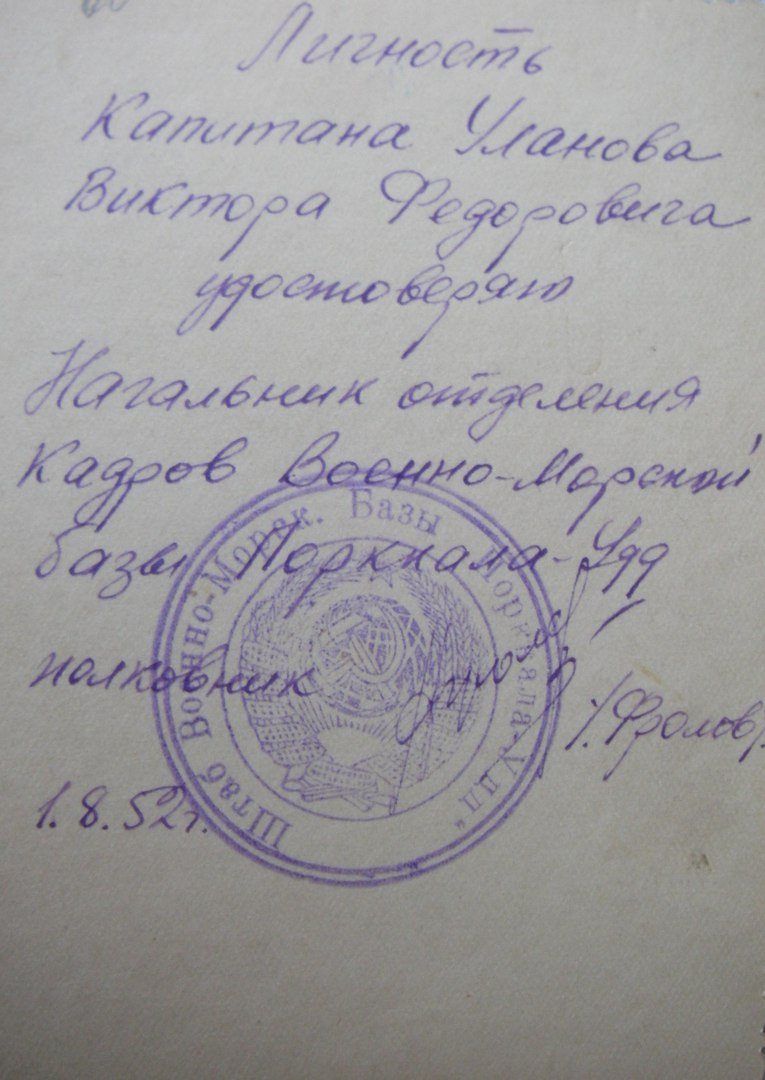 Личность
Капитана Уланова
Виктора Федоровича
удостоверяю
Начальник отделения
Кадров Военно-Морской
базы Порккала-Удд
полковник
/Фролов/
1.8.52г.
Штаб Военно-Морск. Базы "Порккала-Удд"